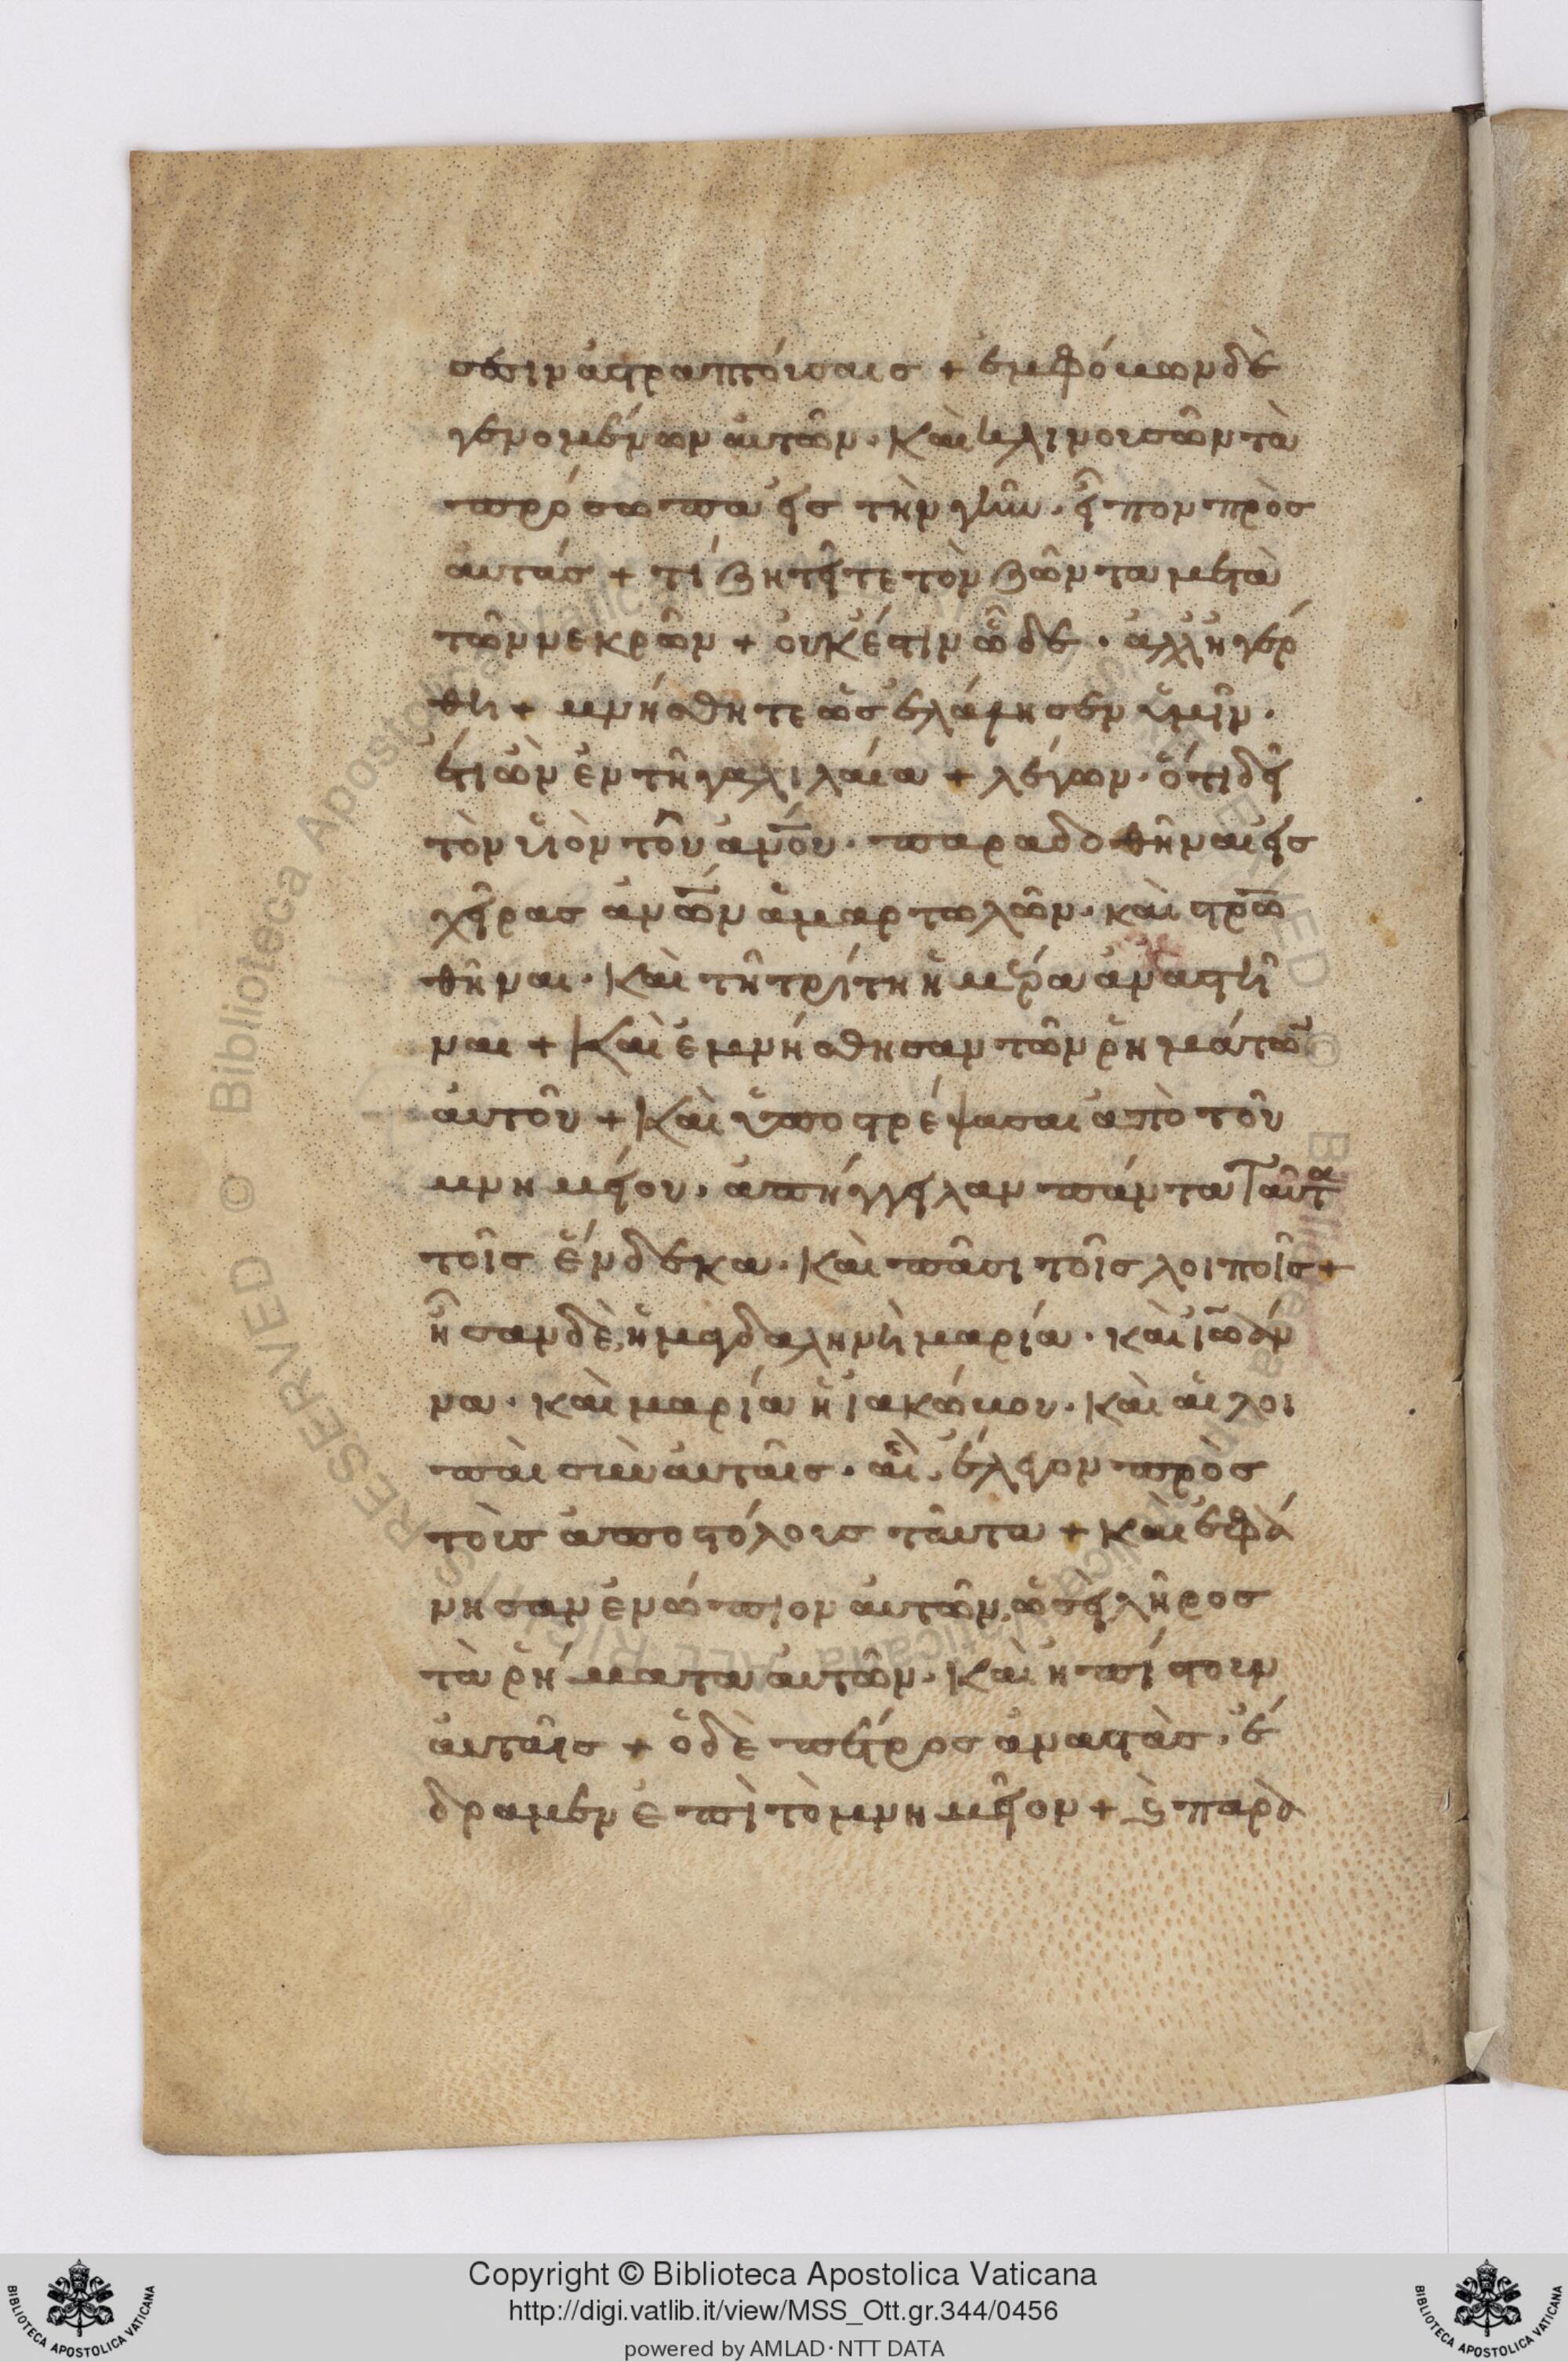 σεσιν ἀστραπτούσαις + ἐμφόβων δὲ
γενομένων αὐτῶν · Καὶ κλινουσῶν τὰ
πρόσωπα εἰς τὴν γῆν · εἶπον πρὸς
αὐτάς + τί ζητεῖτε τὸν ζῶντα μετὰ
τῶν νεκρῶν + οὐκ ἔστιν ὧδε · ἀλλ ἠγέρ
θη + μνήσθητε ὡς ἐλάλησεν ὑμῖν ·
ἔτι ὢν ἐν τῇ γαλιλαία + λέγων · ὅτι δεῖ
τὸν υἱὸν τοῦ ἀν̅ου · παραδοθῆναι εἰς
χεῖρας ἀν̅ων ἁμαρτωλῶν · καὶ στρ̅ω
θῆναι · Καὶ τῆ τρίτη ἡμέρα ἀναστῆ
ναι + Καὶ ἐμνήσθησαν τῶν ῥημάτω̅
αὐτοῦ + Καὶ ὑποστρέψασαι ἀπὸ τοῦ
μνημείου · ἀπήγγειλαν πάντα ταῦτα
τοῖς ἕνδεκα · Καὶ πᾶσι τοῖς λοιποῖς +
ἦσαν δὲ, ἡ μαγδαληνὴ μαρία · καὶ ἰωάν
να · καὶ μαρία ἡ ἰακώβου · Καὶ αἱ λοι
παὶ σὺν αὐταῖς · αἳ, ἔλεγον πρὸς
τοὺς ἀποστόλους ταῦτα + Καὶ ἐφά
νησαν ἐνώπιον αὐτῶν, ὡσεὶ λῆρος
τὰ ῥήματα αὐτῶν · Καὶ ἠπίστουν
αὐταῖς + ὁ δὲ πέτρος ἀναστὰς · ἔ
δραμεν ἐπὶ τὸ μνημεῖον + Ϛ παρα
Copyright © Biblioteca Apostolica Vaticana
http://digi.vatlib.it/view/MSS_Ott.gr.344/0456
powered by AMLAD·NTT DATA